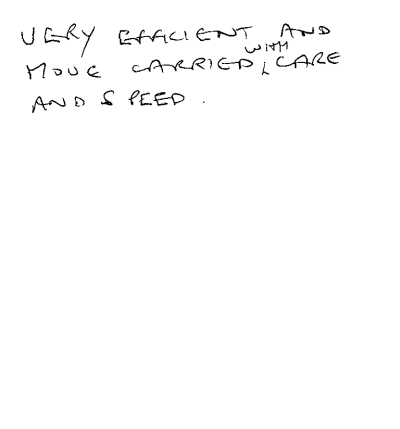 VERY EFFICIENT AND
MOVE CARRIED WITH CARE
AND SPEED.